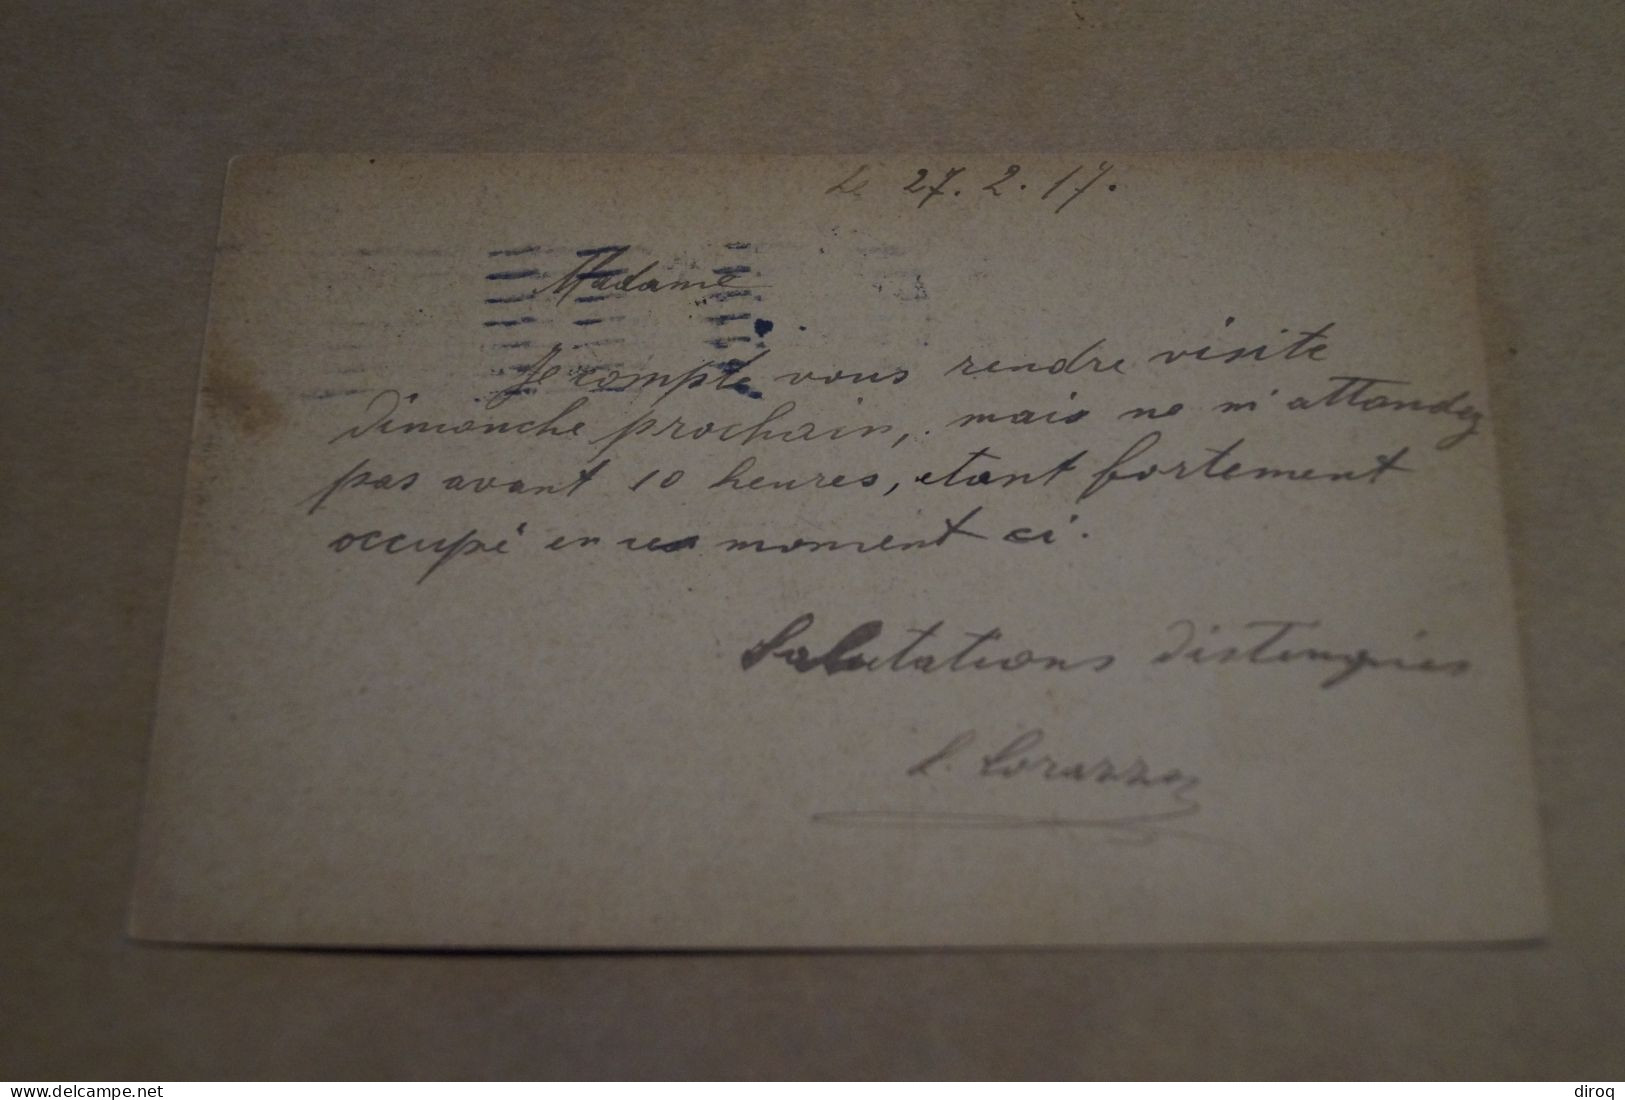 Le 27.2.17.
Madame
Je compte vous rendre visite
dimanche prochain, mais ne m'attendez
pas avant 10 heures, etant fortement
occupé en ce moment ci.
Salutations distinguées
delcampe.net
diroq